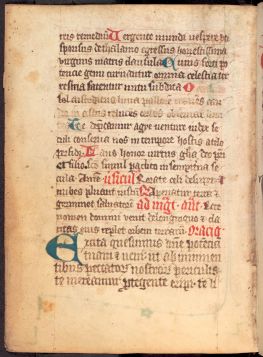 reis remedium Uergente mundi uespere uti
sponsus de thalamo egressus honestissima
uirginis matris clausula Cuius forti po
tencie genu curuantur omnia celestia ter
restria fatentur nutu subdita O
bol custodiens luna pallore
in astris relucens certos
Te deprecamur agye uenture iudex se
culi conserua nos in tempore hostis a telo
perfidi Laus honor uirtus gloria deo patri
et filio sancto simul paraclito in sempiterna se
cula Amen uersiculus Rorate celi desuper et
nubes pluant iustum Aperiatur terra et
germinet saluatorem ad magnificat ant Ecce
nomen domini uenit de longinquo et cla
ritas eius replet orbem terrarum Oracio
Excita quesumus domine potenciam
tuam et ueni ut ab imminen
tibus peccatorum nostrorum periculis
te mereamur protegente eripi te li